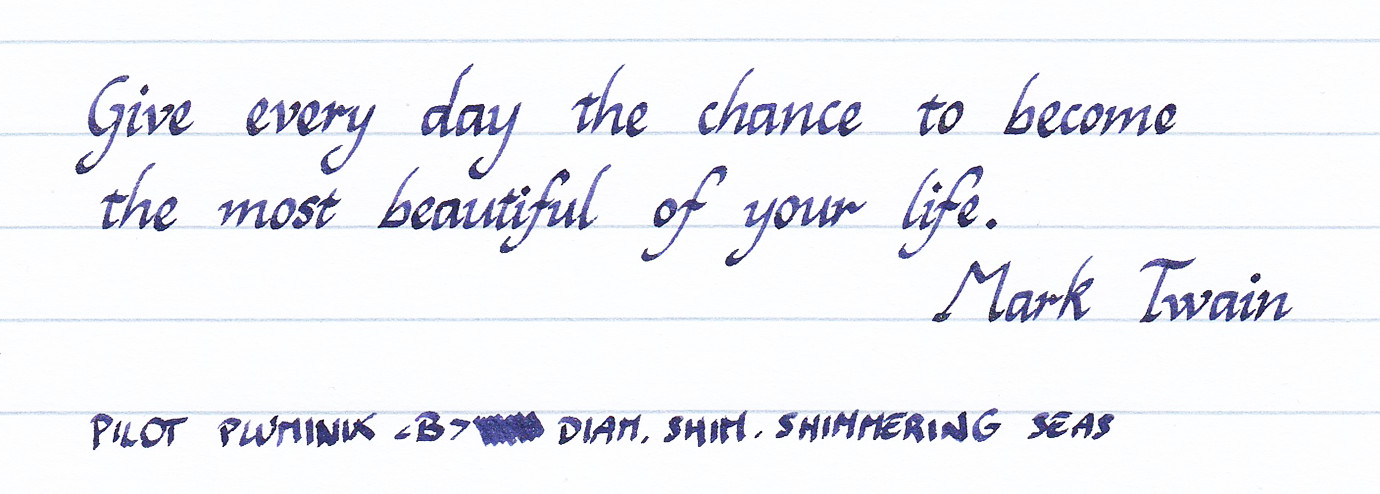 Give every day the chance to become
the most beautiful of your life.
Mark Twain
PILOT PLUMINIX <B> DIAM. SHIM. SHIMMERING SEAS